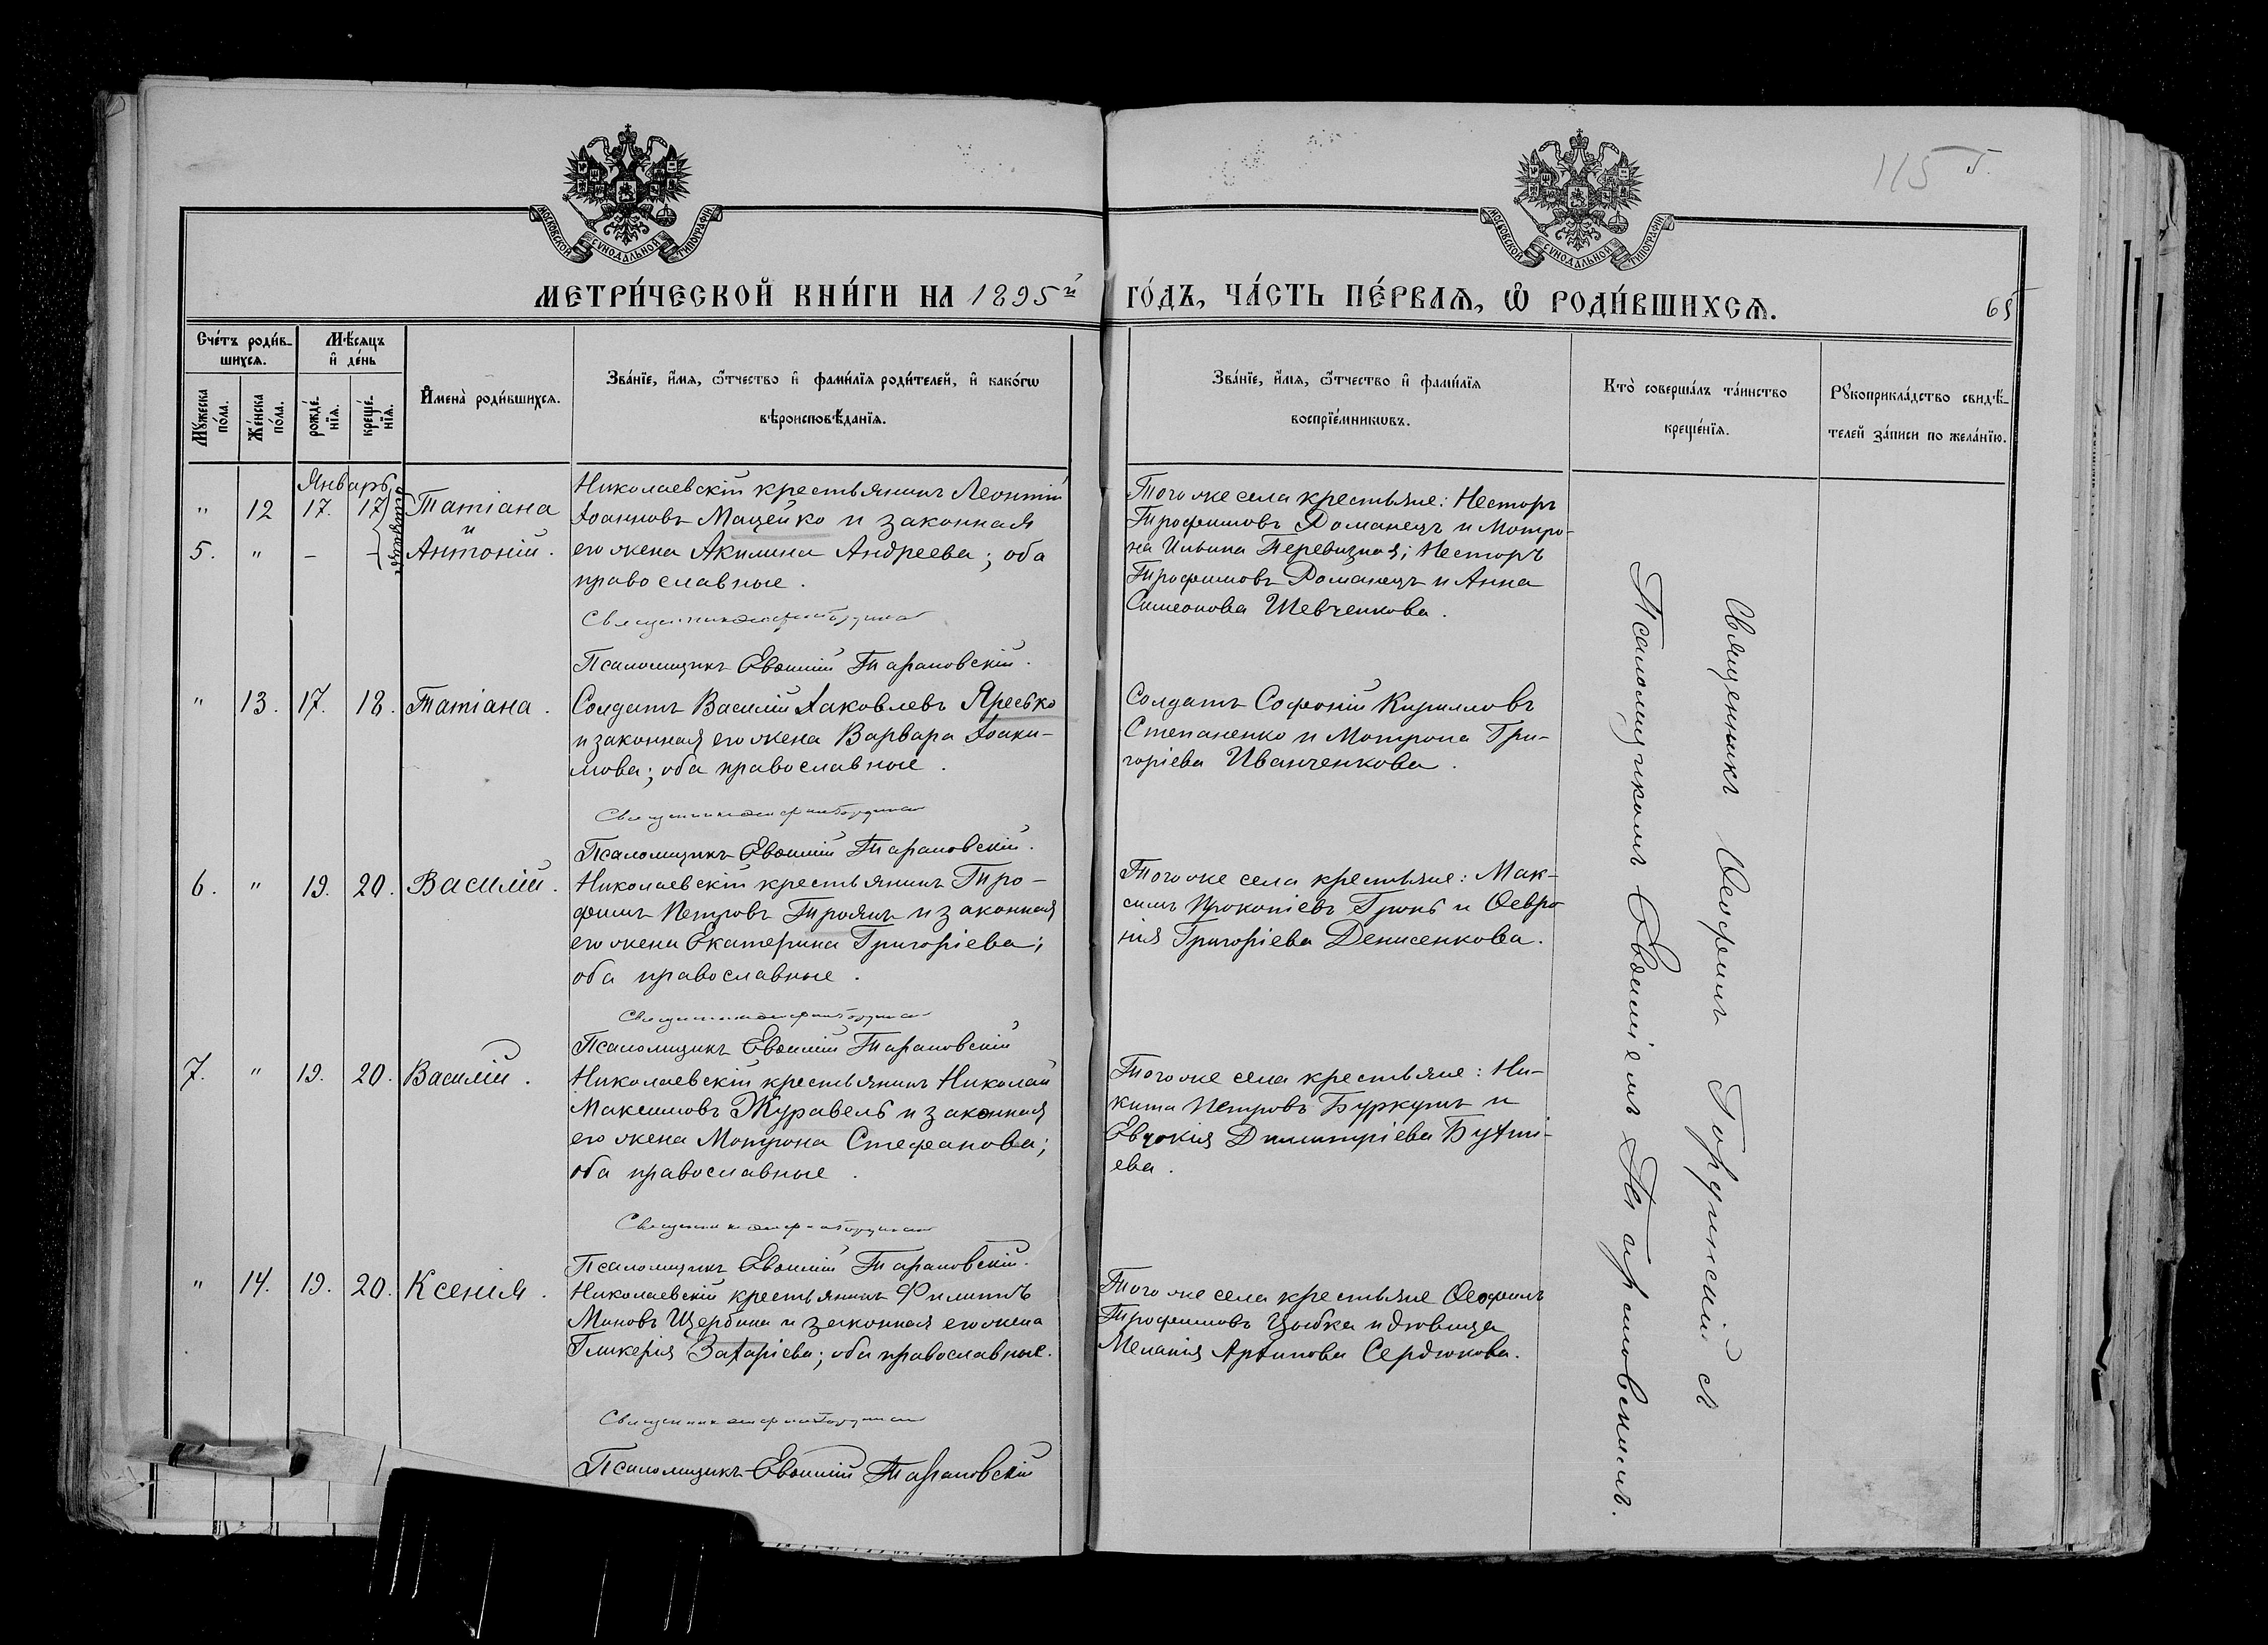 115
МОСКОВСКОЙ СѴНОДАЛЬНОЙ ТИПОГРАФІИ
МОСКОВСКОЙ СѴНОДАЛЬНОЙ ТИПОГРАФІИ
МЕТРИ́ЧЕСКОЙ КНИ́ГИ НА 1895й
ГО́ДЪ, ЧА́СТЬ ПЕ́РВАѦ, Ѿ РОДИ́ВШИХСѦ.
65
Сче́тъ роди́в-
шихсѧ.
Мѣ́сѧцъ
и҆ де́нь
Мꙋ́жеска
по́ла.
Же́нска
по́ла.
рожде́-
нїѧ.
креще́-
нїѧ.
И҆мена̀ роди́вшихсѧ.
Зва́нїе, и҆́мѧ, ѻ҆́тчество и҆ фами́лїѧ роди́телей, и҆ како́гѡ
вѣроисповѣ́данїѧ.
Зва́нїе, и҆́мѧ, ѻ҆́тчество и҆ фами́лїѧ
воспрїе́мникѡвъ.
Кто̀ соверша́лъ та́инство
креще́нїѧ.
Рꙋкоприкла́дство свидѣ́-
телей за́писи по жела́нїю.
Январь
" 12 17. 17 Татіана
и
5. " – – Антоній.
близнецы
Николаевскій крестьянинъ Леонтій
Іоанновъ Мацейко и законная
его жена Акилина Андреева; оба
православные.
Священникъ
Псаломщикъ Евѳимій Тарановскій.
Того же села крестьяне: Несторъ
Трофимовъ Романецъ и Мотро-
на Ильина Перевизная; Несторъ
Трофимовъ Романецъ и Анна
Симеонова Шевченкова.
" 13. 17. 18. Татіана.
Солдатъ Василій Іаковлевъ Яресько
и законная его жена Варвара Іоаки-
мова; оба православные.
Священникъ
Псаломщикъ Евѳимій Тарановскій.
Солдатъ Софоній Кирилловъ
Степаненко и Мотрона Гри-
горіева Иванченкова.
6. " 19. 20. Василій.
Николаевскій крестьянинъ Тро-
фимъ Петровъ Троянъ и законная
его жена Екатерина Григоріева;
оба православные.
Священникъ
Псаломщикъ Евѳимій Тарановскій
Того же села крестьяне: Мак-
симъ Прокопіевъ Гринь и Ѳевро-
нія Григоріева Денисенкова.
7. " 19. 20. Василій.
Николаевскій крестьянинъ Николай
Максимовъ Журавель и законная
его жена Мотрона Стефанова;
оба православные.
Священникъ
Псаломщикъ Евѳимій Тарановскій.
Того же села крестьяне: Ни-
кита Петровъ Буркутъ и
Евдокія Димитріева
ева.
" 14. 19. 20. Ксенія.
Николаевскій крестьянинъ Филиппъ
Миновъ Щербина и законная его жена
Гликерія Захаріева; оба православные.
Священникъ
Псаломщикъ Евѳимій Тарановскій
Того же села крестьяне Ѳеофилъ
Трофимовъ Цыбка и дѣвица
Меланія Архипова Сердюкова.
Священникъ Ѳеофилъ Гординскій съ
Псаломщикомъ Евѳиміемъ Тарановскимъ.